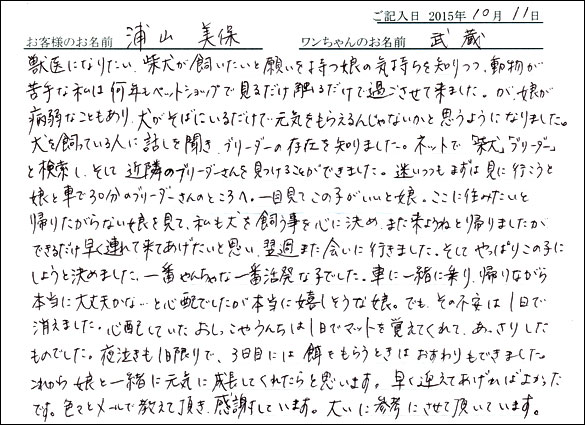 ご記入日 2015年 10月 11日
お客様のお名前 浦山 美保 ワンちゃんのお名前 武蔵
獣医になりたい、柴犬が飼いたいと願いを持つ娘の気持ちを知りつつ、動物が
苦手な私は何年もペットショップで見るだけ触るだけで過ごさせて来ました。が、娘が
病弱なこともあり、犬がそばにいるだけで元気をもらえるんじゃないかと思うようになりました。
犬を飼っている人に話しを聞き、ブリーダーの存在を知りました。ネットで「柴犬」「ブリーダー」
と検索し、そして近隣のブリーダーさんを見つけることができました。迷いつつもまずは見に行こうと
娘と車で30分のブリーダーさんのところへ。一目見てこの子がいいと娘。ここに住みたいと
帰りたがらない娘を見て、私も犬を飼う事を心に決め、また来ようねと帰りましたが
できるだけ早く連れて来てあげたいと思い、翌週また会いに行きました。そしてやっぱりこの子に
しようと決めました。一番やんちゃな一番活発な子でした。車に一緒に乗り、帰りながら
本当に大丈夫かな…と心配でしたが本当に嬉しそうな娘。でも、その不安は1日で
消えました。心配していたおしっこやうんちは1日でマットを覚えてくれて、あっさりした
ものでした。夜泣きも1日限りで、3日目には餌をもらうときはおすわりもできました。
これから娘と一緒に元気に成長してくれたらと思います。早く迎えてあげればよかった
です。色々とメールで教えて頂き、感謝しています。大いに参考にさせて頂いています。